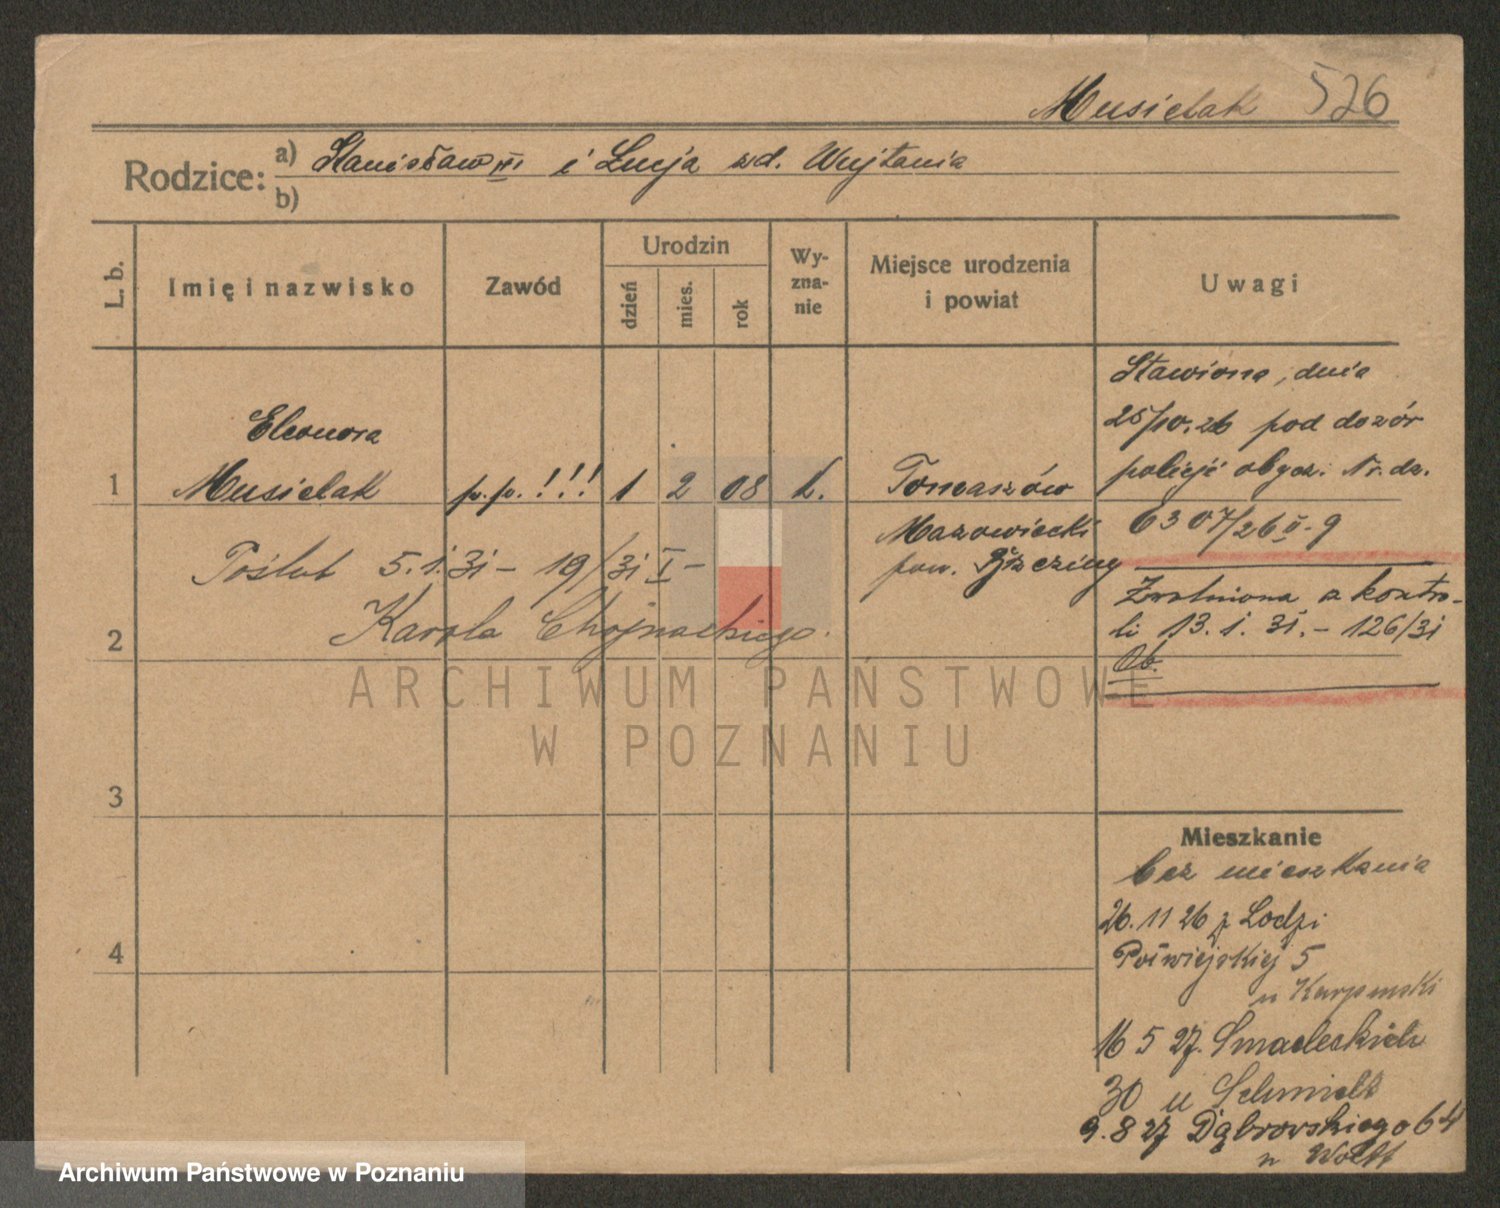 Musielak 526
Rodzice: a) Stanisław III i Łucja zd. Wujtania
b)
L. b.
Imię i nazwisko
Zawód
Urodzin
dzień
mies.
rok
Wy-
zna-
nie
Miejsce urodzenia
i powiat
Uwagi
1
Eleonora
Musielak
p.p. !!!
1
2
08
k.
Tomaszów
Mazowiecki
pow. Brzeziny
Stawiona, dnia
25/10.26 pod dozór
policji obycz. Nr. dz.
6307/26 II-9
Zwolniona z kontro-
li 13.1.31. - 126/31
Ob.
Poślub 5.1.31 - 19/31 I -
2
Karola Chojnackiego.
ARCHIWUM PAŃSTWOWE
W POZNANIU
3
4
Mieszkanie
bez mieszkania
26.11 26 z Lodzi
Poświejskiej 5
u
16 5 27. Smaeleskich
30 u Schmidt
9.8 27 Dąbrowskiego 64
u Wolff
Archiwum Państwowe w Poznaniu